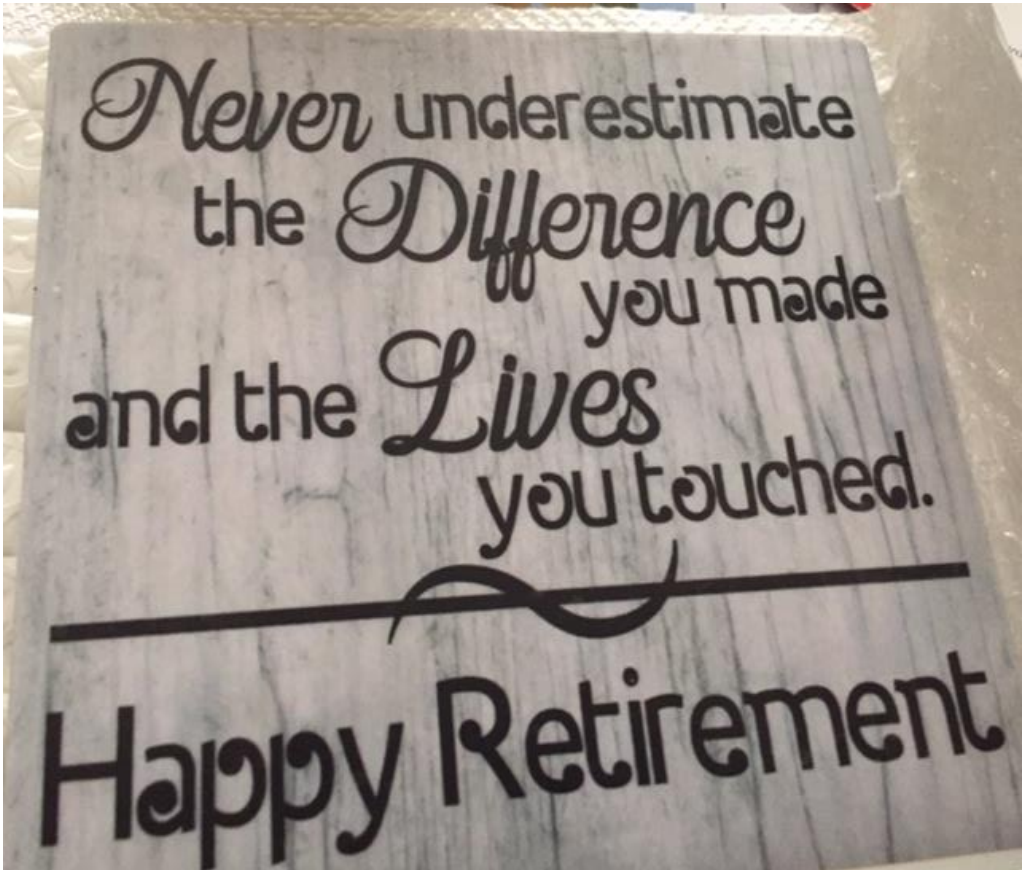 Never underestimate
the Difference
you made
and the Lives
you touched.
Happy Retirement